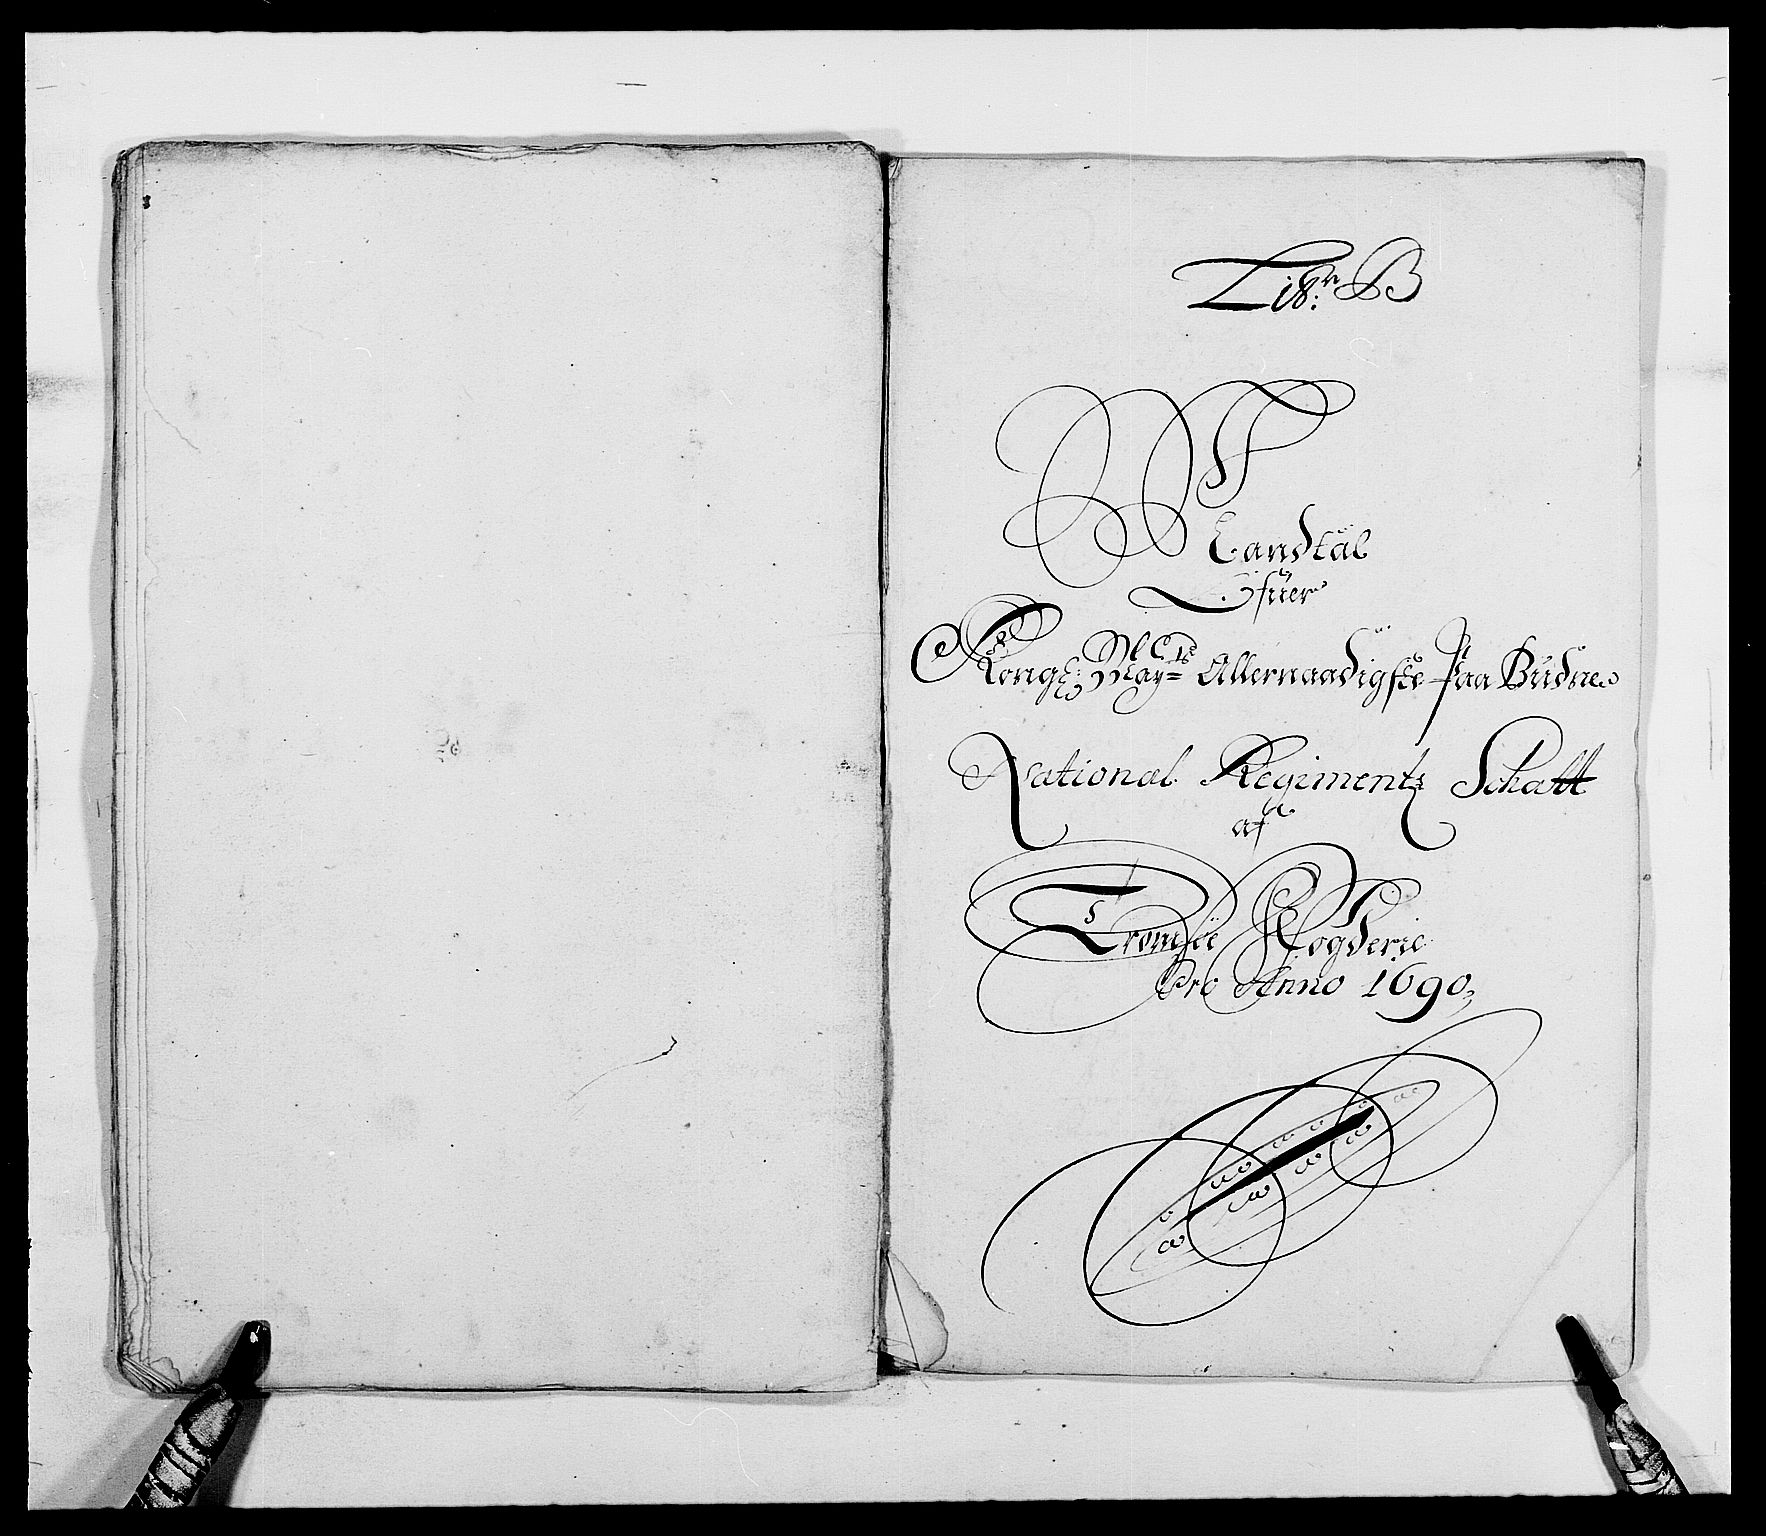 Litr: B
Mandtal
Ofuer
Kongl: Mayts Allernaadigste Paa Budne
National Regimentz Schatt
af
Tromsöe Fogderie
Pro Anno 1690